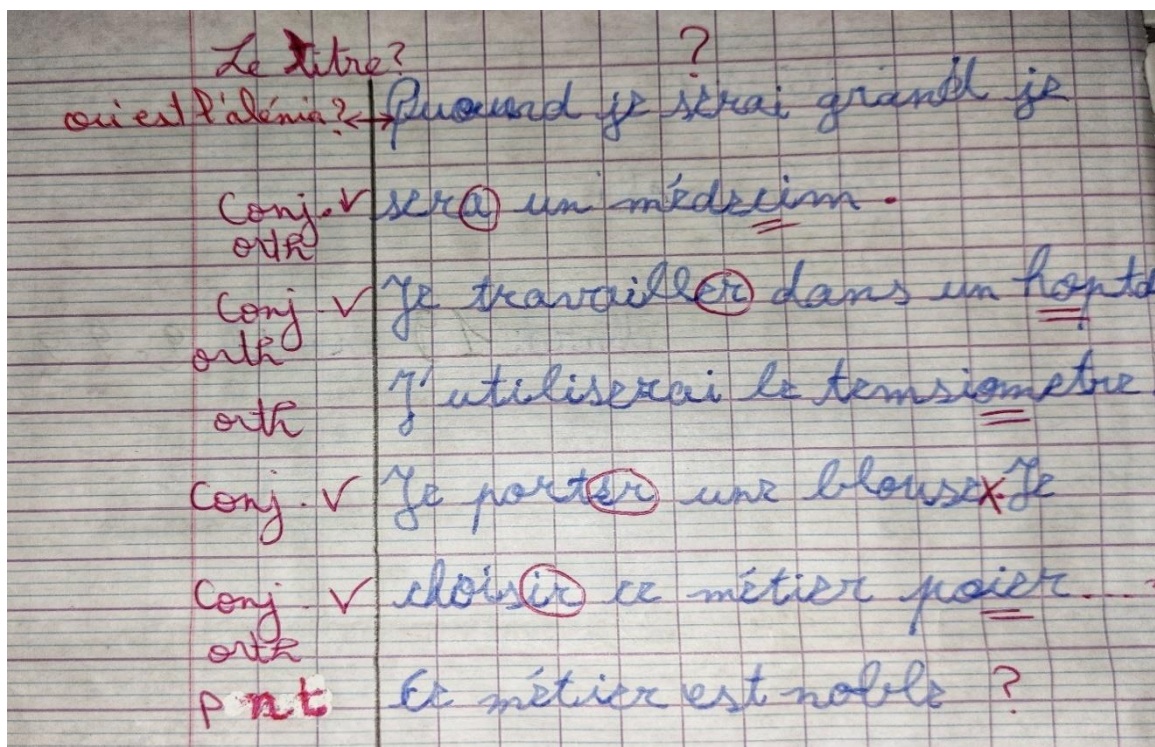 Le titre? ?
où est l'alénia? Quuand je serai grand je
Conj. sera un médecim.
orth
Conj. Je travailler dans un hopta
orth
orth J'utiliserai le temsiometre.
Conj. Je porter une blouse x Je
Conj. choisir ce métier poier....
orth
P nt Ce métier est noble ?